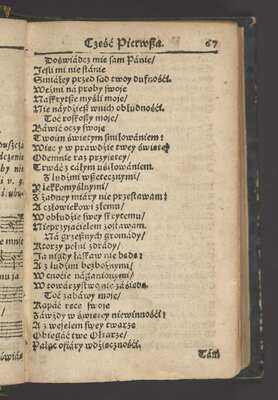 Cześć Pierwsza. 67
Doświadcz mie sam Pánie/
Jesli mi nie stánie
Śmiáłey przed sąd twoy dufnośći.
Weźmi ná proby swoje
Naskrytsze myśli moje/
Nie náydziesz w nich obłudnośći.
Toć roskoszy moje/
Báwić oczy swoje
Twoim świętym smiłowániem:
Więc y w prawdzie twey święcey
Odemnie raz przyiętey/
Trwáć z cáłym usiłowániem.
Z ludźmi wszetecznymi/
Y lekkomyślnymi/
Z żadney miáry nie przestawam:
A człowiekowi złemu/
W obłudzie swey skrytemu/
Nieprzyjacielem zostawam.
Ná grzesznych gromády/
Ktorzy pełni zdrády/
Ja nigdy łáskaw nie będę:
A z ludźmi bezbożnymi/
W cnoćie nágánionymi/
W towárzystwo nie zásiędę.
Toć zabáwy moje/
Kąpáć ręce swoje
Záwżdy w święcey niewinnośći:
A z weselem swey twarze
Obiegáć twe Ołtarze/
Paląc ofiáry wdzięcznośći.
Tám